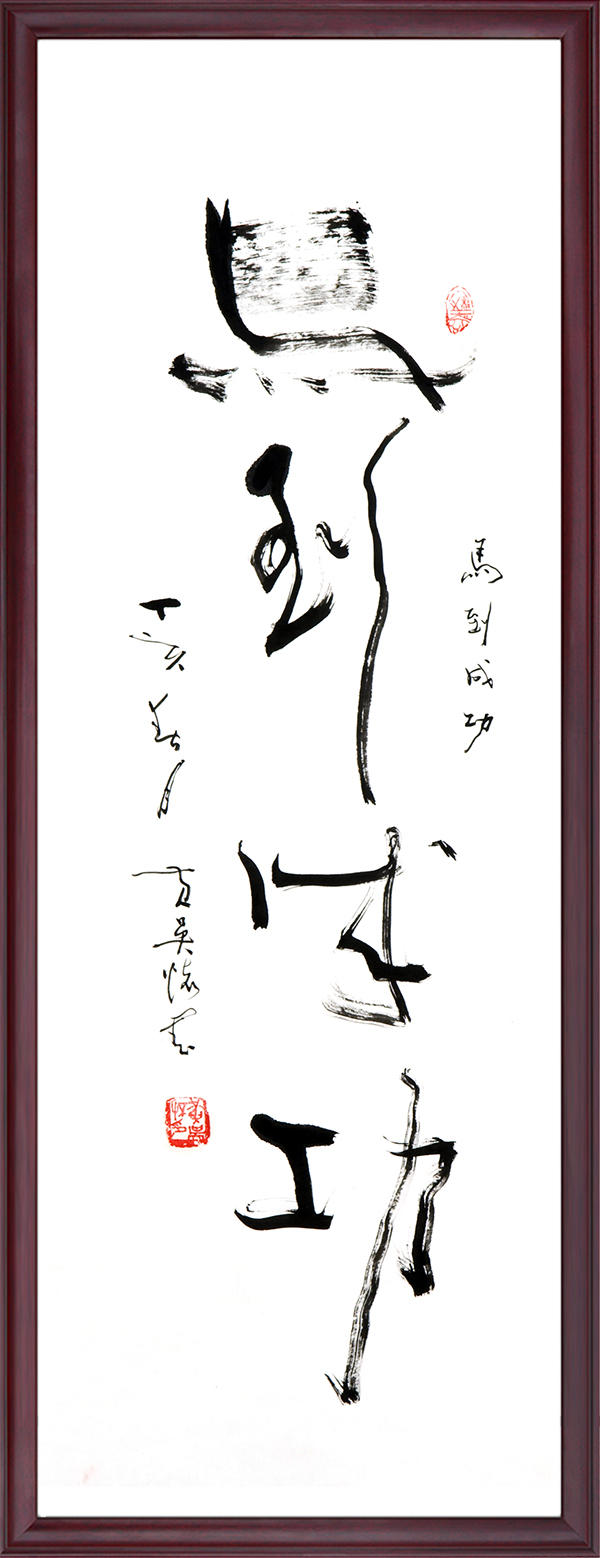 馬到成功
馬到成功
丁亥春月 吳懷